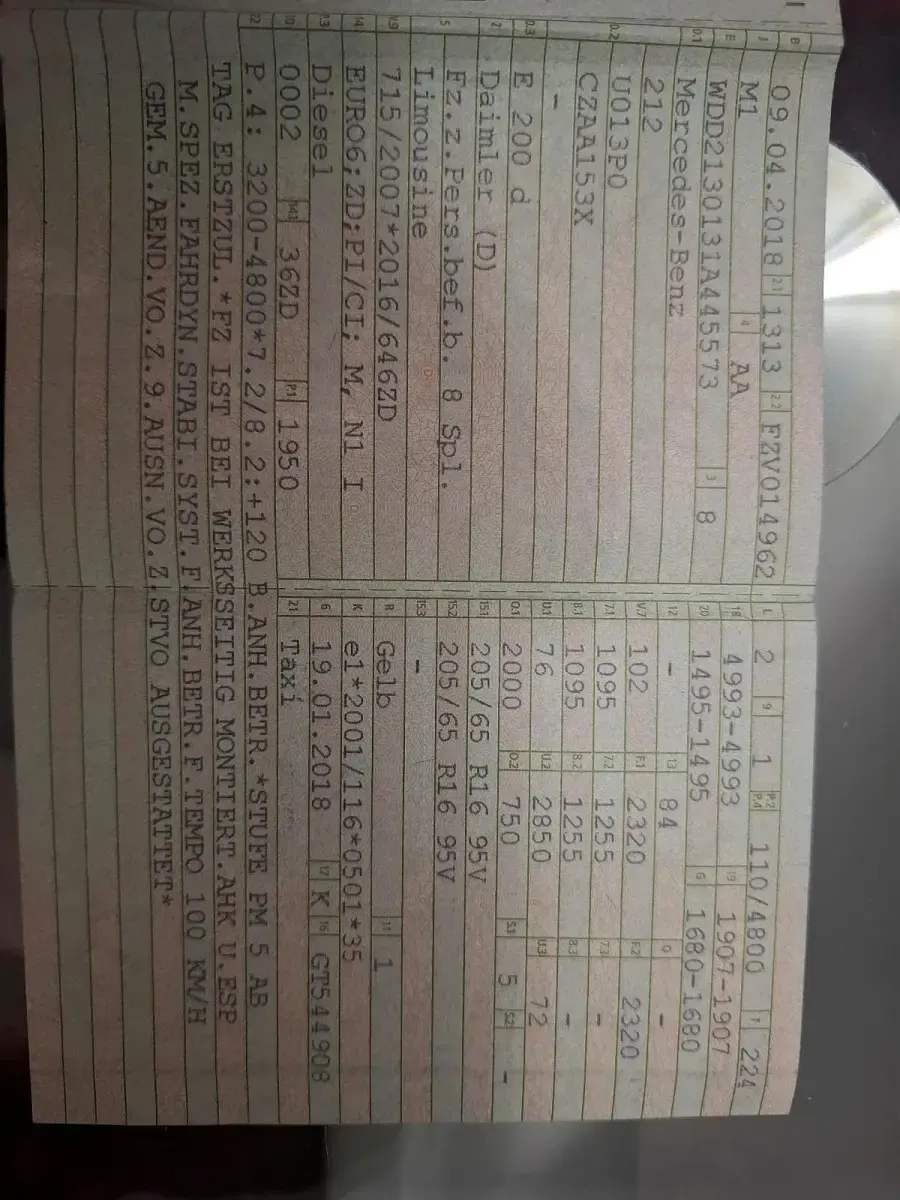 B 09.04.2018 2.1 1313 2.2 FZV014962
J M1 4 AA
E WDD2130131A445573 3 8
D.1 Mercedes-Benz
212
D.2 U013P0
CZAA153X
-
D.3 E 200 d
2 Daimler (D)
5 Fz.z.Pers.bef.b. 8 Spl.
Limousine
V.9 715/2007*2016/646ZD
14 EURO6;ZD;PI/CI; M, N1 I
P.3 Diesel
10 0002 14.1 36ZD P.1 1950
L 2 9 1 P.2 P.4 110/4800 T 224
18 4993-4993 19 1907-1907
20 1495-1495 G 1680-1680
12 - 13 84 Q -
V.7 102 F.1 2320 F.2 2320
7.1 1095 7.2 1255 7.3 -
8.1 1095 8.2 1255 8.3 -
U.1 76 U.2 2850 U.3 72
O.1 2000 O.2 750 S.1 5 S.2 -
15.1 205/65 R16 95V
15.2 205/65 R16 95V
15.3 -
R Gelb 11 1
K e1*2001/116*0501*35
6 19.01.2018 17 K 16 GT544908
21 Taxi
22 P.4: 3200-4800*7.2/8.2:+120 B.ANH.BETR.*STUFE PM 5 AB
TAG ERSTZUL.*FZ IST BEI WERKSSEITIG MONTIERT.AHK U.ESP
M.SPEZ.FAHRDYN.STABI.SYST.F.ANH.BETR.F.TEMPO 100 KM/H
GEM.5.AEND.VO.Z.9.AUSN.VO.Z.STVO AUSGESTATTET*